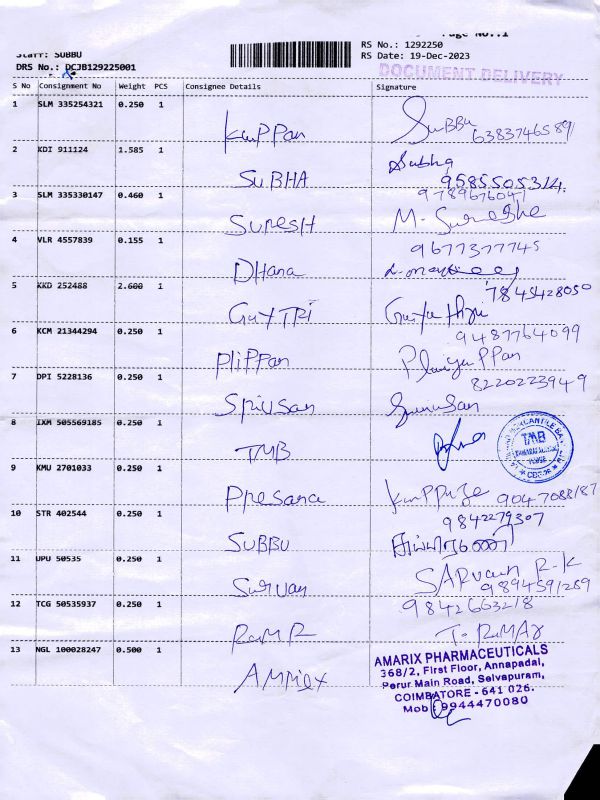 Page No.:1
Staff: SUBBU
RS No.: 1292250
DRS No.: DCJB129225001
RS Date: 19-Dec-2023
DOCUMENT DELIVERY
S No Consignment No Weight PCS Consignee Details Signature
1 SLM 335254321 0.250 1 Kuppan SUBBU 6383746589
2 KDI 911124 1.585 1 SUBHA Subha 9585505314
3 SLM 335330147 0.460 1 SURESH 9789676041 M. Sureshe
4 VLR 4557839 0.155 1 Dhana 9677377745
5 KKD 252488 2.600 1 GAYTRI 7845428050
6 KCM 21344294 0.250 1 PLIPPan 9487764099
7 DPI 5228136 0.250 1 8220223949
8 IXM 505569185 0.250 1 TMB
TMB
9 KMU 2701033 0.250 1 Presana
10 STR 402544 0.250 1 SUBBU 9842279307
11 UPU 50535 0.250 1 Survan SARVAN R-K 9894591289
12 TCG 50535937 0.250 1 RAMR
13 NGL 100028247 0.500 1
AMARIX PHARMACEUTICALS
368/2, First Floor, Annapadai,
Perur Main Road, Selvapuram,
COIMBATORE - 641 026.
Mob : 9944470080